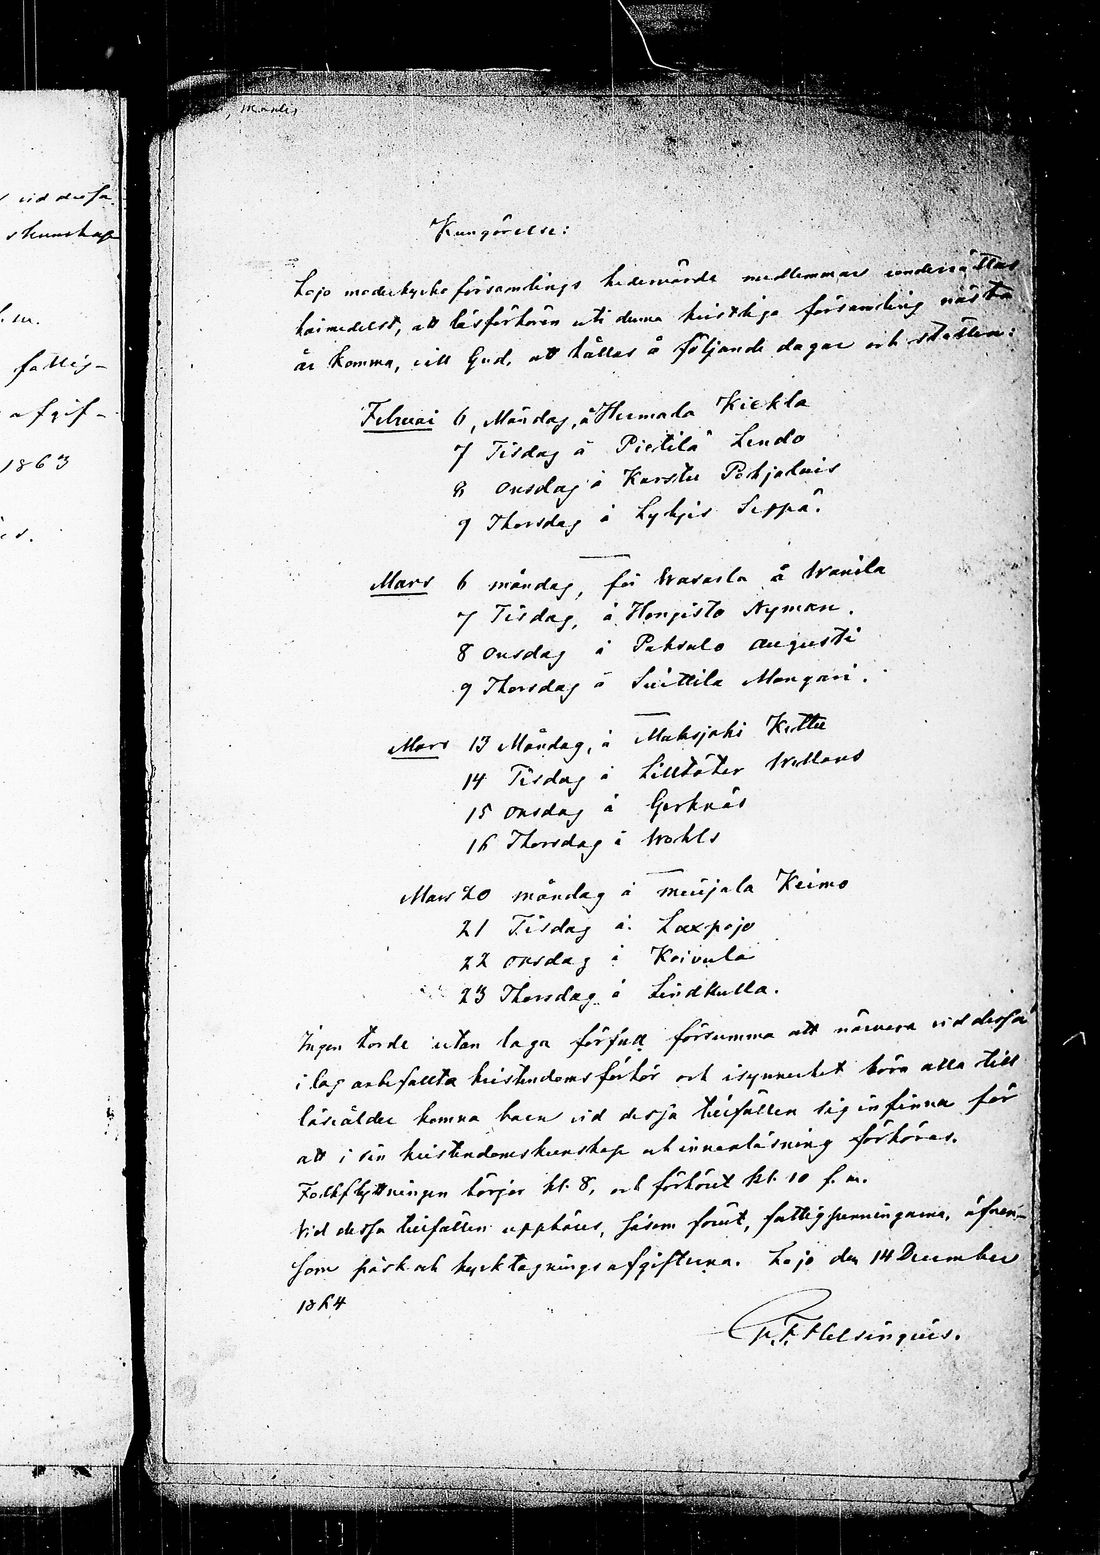 vid dessa
skunskap
fattig-
afgif-
1863
Kungörelse:
Lojo moderkyrko församlings hedervärde medlemmar underrättas
härmedelst, att läsförhören uti denna kristliga församling nästa
år komma, vill Gud, att hållas å följande dagar och ställen:
Februari 6, Måndag, å Hermala Kiekla
7 Tisdag å Pietilä Lendo
8 onsdag å Karstu Pohjolais
9 Thorsdag å Lylyis Seppä.
Mars 6 måndag, för Wararla å Wanila
7 Tisdag, å Hongisto Nyman.
8 onsdag å Paksalo Augusti
9 Thorsdag å Suittila Mongari.
Mars 13 Måndag, å Maksjoki Kuttu
14 Tisdag å Lilltöter Wellans
15 onsdag å Gerknäs
16 Thorsdag å Wohls
Mars 20 måndag å muijala Keimo
21 Tisdag å Laxpojo
22 onsdag å Koivula
23 Thorsdag å Lindkulla.
Ingen torde utan laga förfall försumma att närvara vid dessa
i lag anbefallta kristendomsförhör och isynnerhet böra alla till
läseålder komna barn vid dessa tillfällen sig infinna för
att i sin kristendomskunskap och innanläsning förhöras.
Folkflyttningen börjar kl. 8, och förhöret kl. 10 f. m.
Vid dessa tillfällen uppbäres, såsom förut, fattigpenningarna, äfven-
som påsk och kyrktagningsafgifterna. Lojo den 14 December
1864
F. Helsingius.